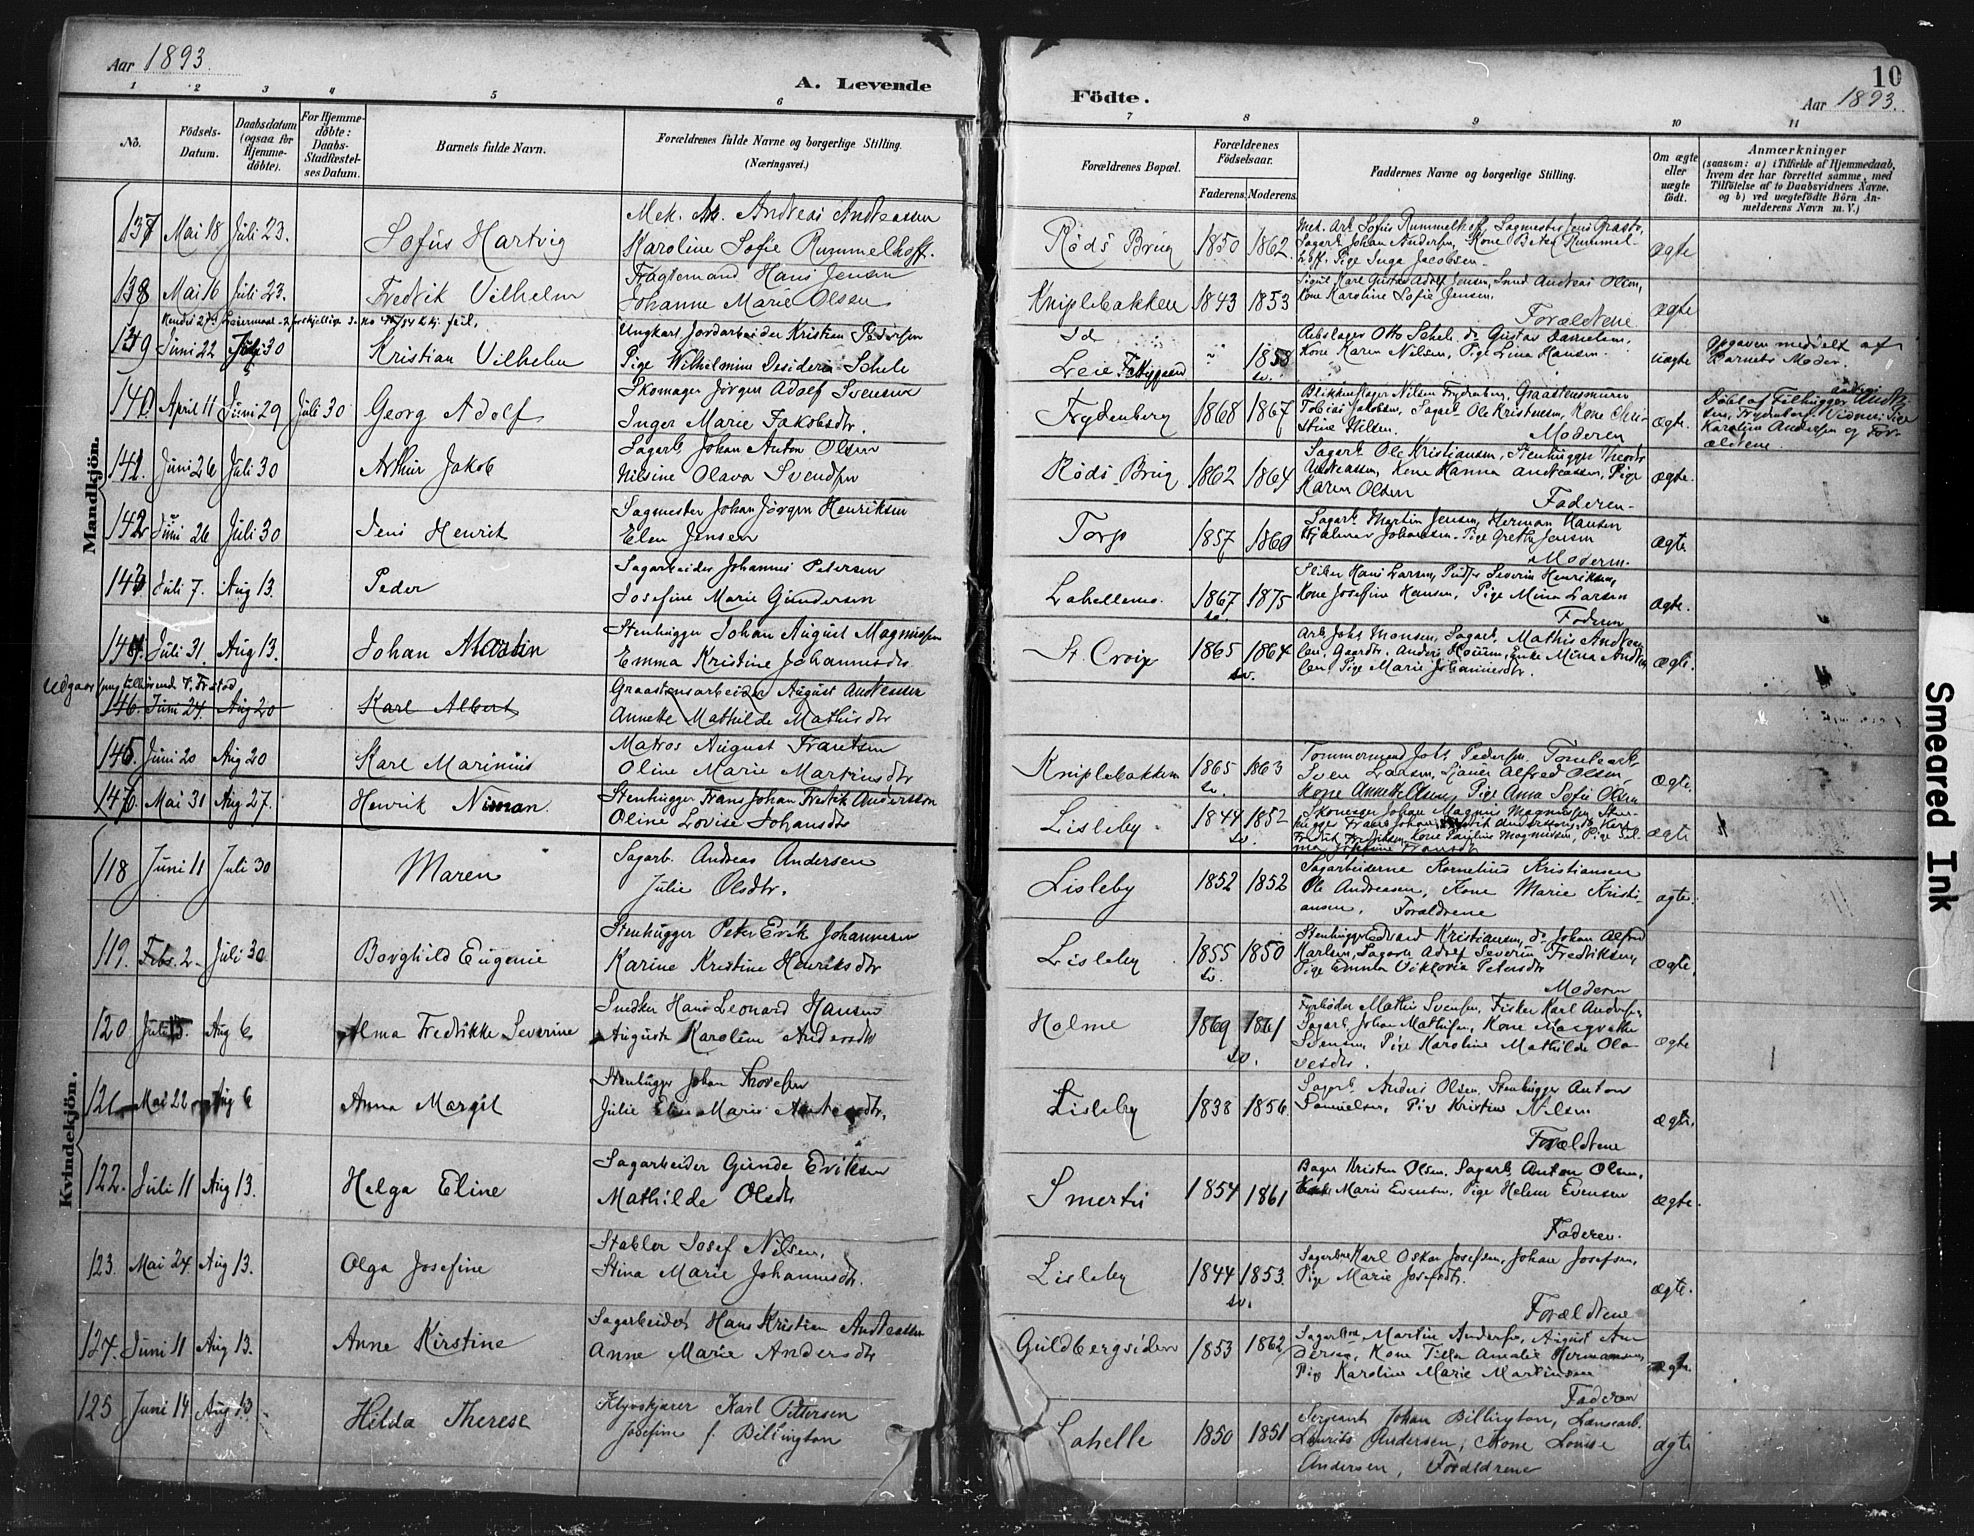 Aar 1893.
A. Levende
Födte.
10
Aar 1893.
1 2 3 4 5 6 7 8 9 10 11
No.
Födsels-Datum.
Daabsdatum (ogsaa for Hjemme-döbte).
For Hjemme-döbte: Daabs-Stadfæstel-ses Datum.
Barnets fulde Navn.
Forældrenes fulde Navne og borgerlige Stilling. (Næringsvei.)
Forældrenes Bopæl.
Forældrenes Födselsaar.
Faderens. Moderens.
Faddernes Navne og borgerlige Stilling.
Om ægte eller uægte født.
Anmærkninger (saasom: a) i Tilfælde af Hjemmedaab, hvem der har forrettet samme, med Tilföielse af to Daabsvidners Navne, og b) ved uægtefödte Börn An-melderens Navn m. V.)
Mandkjön.
137 Mai 18 Juli 23. Sofus Hartvig
Mek. Andreas Andreassen
Karoline Sofie Rummelhoff.
Röds Brug 1850 1862.
Mek. Arb. Sofus Rummelhoff, Sagmester Jens Graato,
Sagarb. Johan Andersen, Kone Beten Rummel-
hoff. Pige Inga Jacobsen.
ægte
138 Mai 16 Juli 23. Fredrik Vilhelm
Fragtemand Hans Jensen
Johanne Marie Olsen
Kniplebakken 1843 1853
Karl Gustav Adolf Jensen, Andreas Olsen,
Kone Karoline Sofie Jensen.
Forældrene
ægte
139 Juni 22 Juli 30 Kristian Vilhelm
Ungkarl Jordarbeider Kristian Pedersen
Pige Wilhelmine Desideria Schele
Leie 1858 sv.
Otto Schele, do Gustav Danielsen,
Kone Karen Nilsen, Pige Lina Hansen.
uægte
Opgaven meddelt af
Barnets Moder.
140 April 11 Juni 29 Juli 30 Georg Adolf
Skomager Jörgen Adolf Svensen
Inger Marie Jakobsdtr.
Frydenberg 1868 1867
Blikkenslager Nilsen Frydenberg, Graastensmurer
Tobias Jakobsen, Sagarb Ole Kristensen, Kone
Stine Nilsen.
Moderen
ægte.
Karoline Andersen og For-
ældrene
141. Juni 26 Juli 30 Arthur Jakob
Sagarb. Johan Anton Olsen
Nilsine Olava Svendsen
Röds Brug 1862 1864
Sagarb. Ole Kristiansen, Stenhugger Theodor
Andreassen, Kone Hanna Andreassen, Pige
Karen Olsen
Faderen.
ægte.
142 Juni 26 Juli 30 Jens Henrik
Sagmester Johan Jörgen Henriksen
Elen Jensen
Torp 1857 1860
Sagarb. Martin Jensen, Herman Hansen
Hjalmar Johansen. Pige Grethe Jensen
Moderen.
ægte
143 Juli 7. Aug 13. Peder
Sagarbeider Johannes Petersen
Josefine Marie Gundersen
Lahellemo. 1867 sv. 1875
Sliber Hans Larsen, Severin Henriksen,
Kone Josefine Hansen, Pige Mina Larsen
Faderen
ægte.
144. Juli 31. Aug 13. Johan Martin
Stenhugger Johan August Magnussen
Emma Kristine Johannesdtr.
St. Croix 1865 1864 sv.
Arb. Johs Monsen, Sagarb. Mathis Andrea-
sen, Gaardbr. Anders Houm, Enke Mina Andrea-
sen, Pige Marie Johannesdtr.
ægte.
Udgaar
146. Juni 24. Aug 20 Karl Albert
Graastensarbeider August Andreassen
Annette Mathilde Mathisdtr
145. Juni 20 Aug 20 Karl Marinius
Matros August Frantsen
Oline Marie Martinsdtr
Kniplebakken 1865 sv. 1863
Tömmermand Johs. Pedersen, Tomtearb.
Sven Larsen, Tjener Alfred Olsen,
Kone Annette Olsen, Pige Anna Sofie Olsen
ægte.
146. Mai 31 Aug 27. Henrik Niman
Stenhugger Frans Johan Fredrik Andersson
Oline Lovise Johansdtr
Lisleby 1844 sv. 1852
ægte
Kvindekjön.
118 Juni 11 Juli 30 Maren
Sagarb. Andreas Andersen
Julie Olsdtr.
Lisleby 1852 1852
Sagarbeiderne Kornelius Kristiansen
Ole Andreasen, Kone Marie Kristi-
ansen, Forældrene
ægte.
119. Febr. 2. Juli 30 Borghild Eugenie
Stenhugger Peter Erik Johannesen
Karine Kristine Henriksdtr
Lisleby 1855 sv. 1850
Stenhugger Edvard Kristiansen, do Johan Alfred
Karlsen, Sagarb. Adolf Severin Fredriksen,
Pige Emma Viktoria Petersdtr
Moderen
ægte.
120 Juli Aug 6 Alma Fredrikke Severine
Snedker Hans Leonard Hansen
Augusta Karoline Andersdtr
Holme 1869 1861 sv.
Fyrböder Mathis Svensen, Fisker Karl Andersen,
Sagarb. Johan Mathisen, Kone Margrethe
Svensen, Pige Karoline Mathilde Ola-
vesdtr.
ægte
121 Mai 22 Aug 6 Anna Margit
Stenhugger Johan Thoresen
Julie Elise Marie
Lisleby 1838 1856
Sagarb. Anders Olsen, Stenhugger Anton
Samuelsen, Pige Kristine Nilsen
Forældrene
ægte.
122. Juli 11 Aug 13. Helga Eline
Sagarbeider Gunde Eriksen
Mathilde Olsdtr
Smertu 1854 1861
Bager Kristen Olsen, Sagarb. Anton Olsen,
Marie Evensen, Pige Helene Evensen
Faderen.
ægte.
123. Mai 24. Aug 13. Olga Josefine
Stabler Josef Nilsen,
Stina Marie Johannesdtr.
Lisleby 1844 sv. 1853.
Sagarbne Karl Oskar Josefsen, Johan Josefsen,
Pige Marie Josefsdtr.
Forældrene
ægte.
124. Juni 11 Aug 13. Anne Kirstine
Sagarbeider Hans Kristian Andreassen
Anne Marie Andersdtr
Guldbergsiden 1853 1862
Sagarbne Martin Andersen, August An-
dersen, Kone Tilla Amalie Hermansen,
Pige Karoline Marie Martinsen
Faderen
ægte.
125 Juni 14 Aug 13 Hilda Therese
Karl Pettersen
Josefine f. Billington
Lahelle 1850 1851
Sergeant Johan Billington, Landsearb.
Laurits Andersen, Kone Louise
Andersen, Forældrene
ægte
Smeared Ink